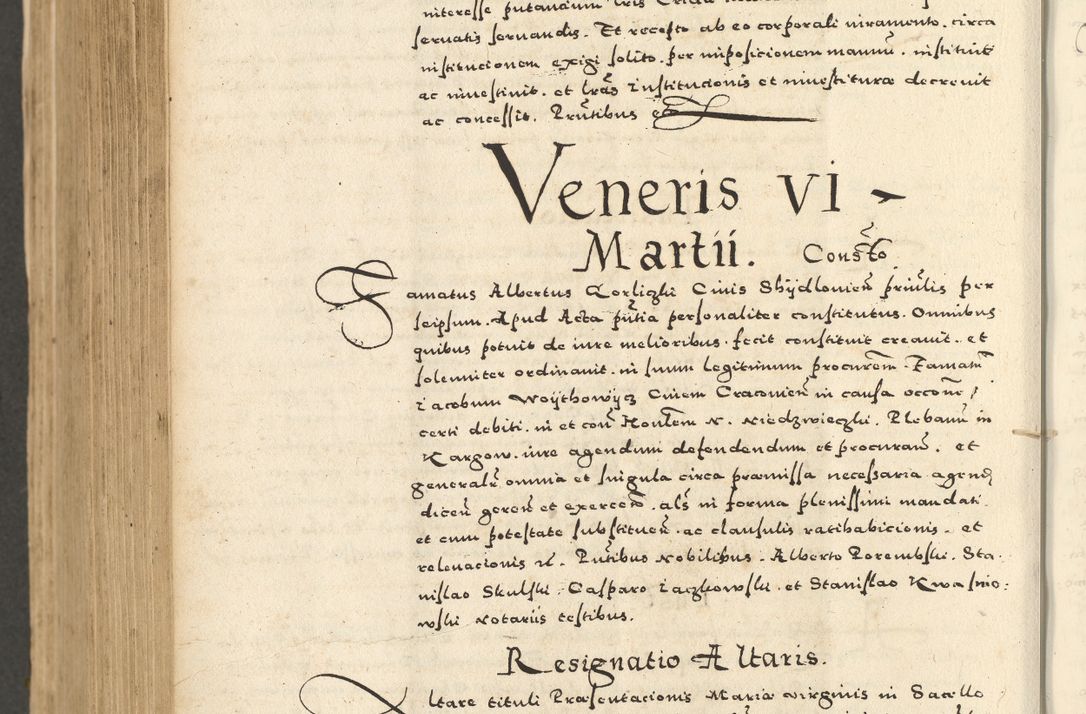 interesse putandum lris
servatis servandis. Et recepto ab eo corporali iuramento. circa
institucionem exigi solito. per imposicionem manuũ. instituit
ac investivit. et lrãs institucionis et investiturae decrevit
ac concessit. Pñtibus etc
Veneris VI
Martii. Constõ
Famatus Albertus Gorliczki Civis Shydlovieñ priñlis per
seipsum. Apud Acta pñtia personaliter constitutus. Omnibus
quibus potuit de iure melioribus. fecit constituit creavit. et
solenniter ordinavit. in suum legitimum procurem̃. Famatũ
Iacobum Woythowycz Civem Cracovieñ in causa occone
certi debiti. in et coñ Honlem N. Niedzwieczki. Plebanũ in
Kargow. iure agendum defendendum et procurañ. et
generalr̃ omnia et singula circa praemissa necessaria agend
diceñ gereñ et exerceñ. als̃ in forma plenissimi mandati
et cum potestate substitueñ. ac clausulis ratihabicionis. et
relevacionis etc. Pñtibus Nobilibus. Alberto Porembski. Sta-
nislao Skulski. Casparo Iaczkowski. et Stanislao Kwasnio-
wski Notariis testibus.
Resignatio Altaris.
Altare tituli Praesentacionis Mariae virginis in Sacello